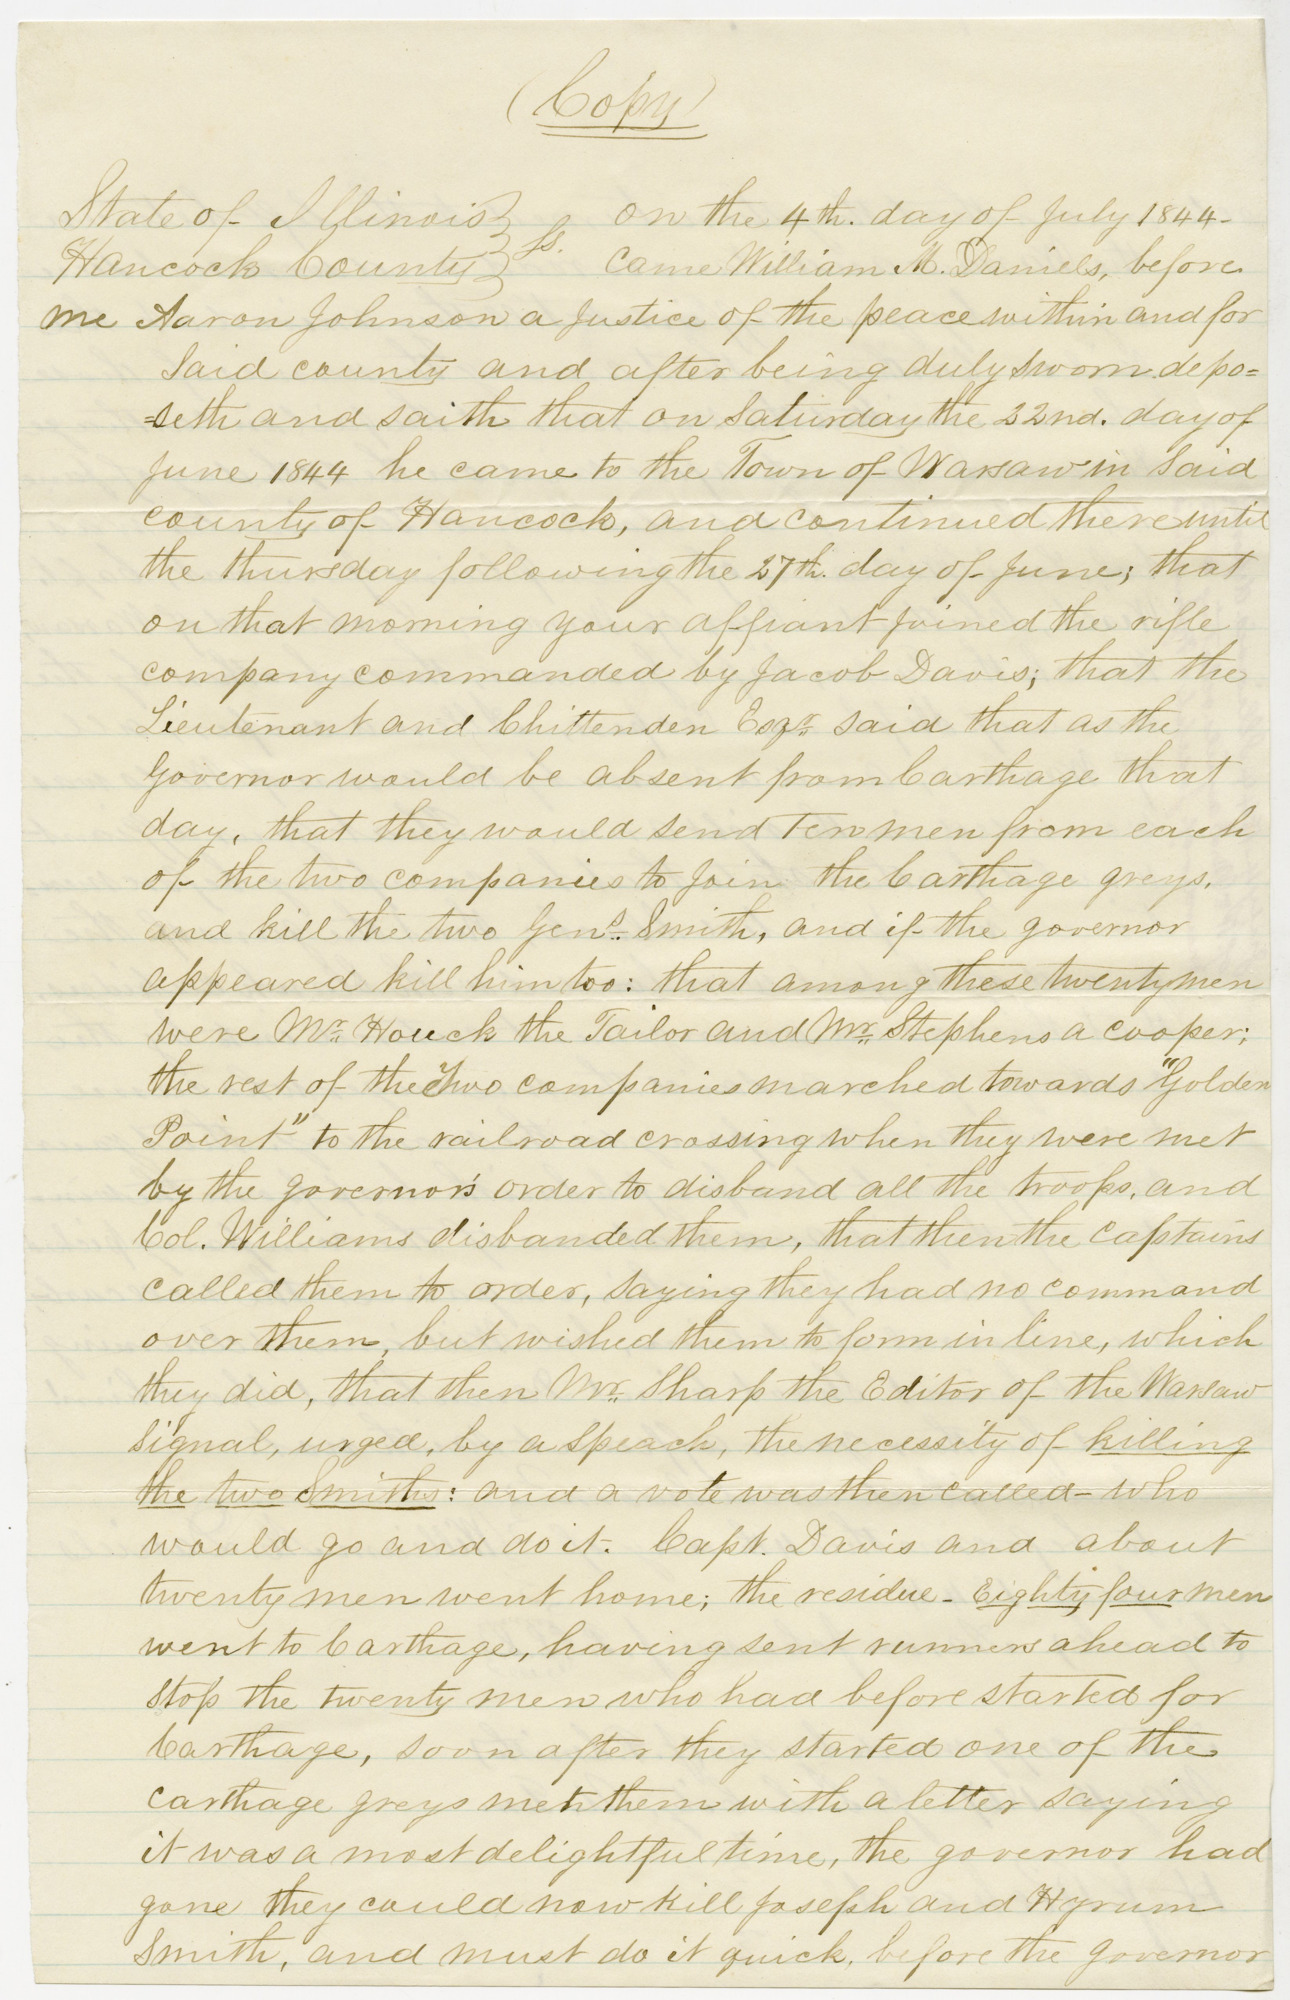 (Copy)
State of Illinois } ss. On the 4th. day of July 1844-
Hancock County } Came William M. Daniels, before
me Aaron Johnson a Justice of the peace within and for
said county and after being duly sworn depo=
=seth and saith that on Saturday the 22nd. day of
June 1844 he came to the Town of Warsaw in said
county of Hancock, and continued there until
the thursday following the 27th. day of June; that
on that morning your affiant joined the rifle
company commanded by Jacob Davis; that the
Lieutenant and Chittenden Esqr. said that as the
Governor would be absent from Carthage that
day, that they would send Ten men from each
of the two companies to join the Carthage greys,
and kill the two Genls. Smith, and if the governor
appeared kill him too: that among these twenty men
were Mr. Houck the Tailor and Mr. Stephens a cooper;
the rest of the Two companies marched towards "Golden
Point" to the railroad crossing when they were met
by the governor's order to disband all the troops, and
Col. Williams disbanded them, that then the captains
called them to order, saying they had no command
over them, but wished them to form in line, which
they did, that then Mr. Sharp the Editor of the Warsaw
Signal, urged, by a speach, the necessity of killing
the two Smiths: and a vote was then called - who
would go and do it. Capt. Davis and about
twenty men went home; the residue - Eighty four men
went to Carthage, having sent runners ahead to
stop the twenty men who had before started for
Carthage, soon after they started one of the
Carthage greys met them with a letter saying
it was a most delightful time, the governor had
gone they could now kill Joseph and Hyrum
Smith, and must do it quick, before the governor